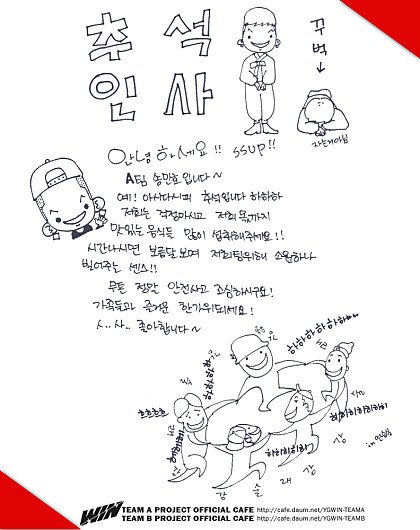 추석
인사
꾸벅
↓
자는거아님
안녕하세요!! SSUP!!
A팀 송민호입니다~
예! 아시다시피 추석입니다 하하하
저희는 걱정마시고 저희 몫까지
맛있는 음식들 많이 섭취해주세요!!
시간나시면 보름달보며 저희팀위해 소원하나
빌어주는 센스!!
무튼 정말 안전사고 조심하시구요!
가족들과 즐거운 한가위되세요!
ㅅ..사.. 좋아합니다~
하하하하하하
하하하하
흐흐흐흐
히히히히히히히
히히히히
강
강
술
래
강
in 연습실
WIN TEAM A PROJECT OFFICIAL CAFE http://cafe.daum.net/YGWIN-TEAMA
TEAM B PROJECT OFFICIAL CAFE http://cafe.daum.net/YGWIN-TEAMB